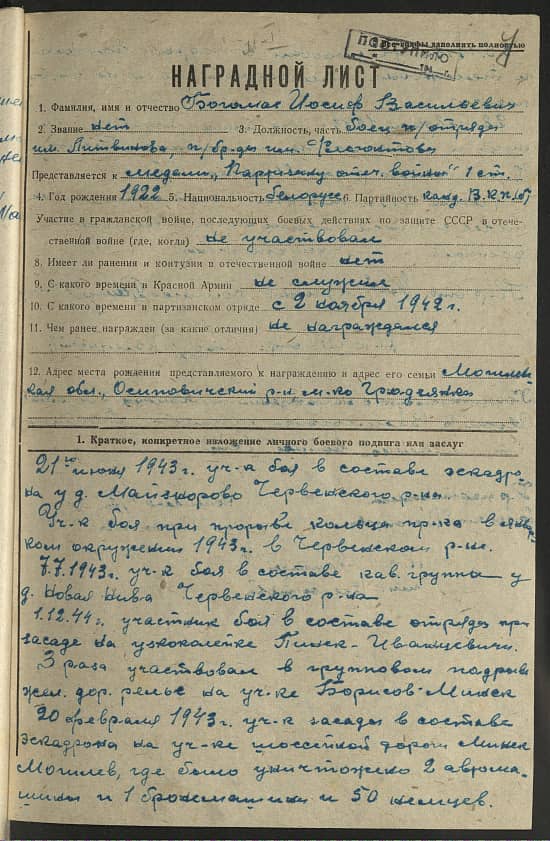 Все графы заполнять полностью
ПОСТУПИЛО
НАГРАДНОЙ ЛИСТ
1. Фамилия, имя и отчество Богомаз Иосиф Васильевич
2. Звание нет 3. Должность, часть боец п/отряда
им. Литвинова, п/бр-ды им. Флегонтова
Представляется к медали „Партизану отеч. войны" 1 ст.
4. Год рождения 1922 5. Национальность белорусс 6. Партийность канд. В.К.П.(б)
Участие в гражданской войне, последующих боевых действиях по защите СССР в отече-
ственной войне (где, когда) не участвовал
8. Имеет ли ранения и контузии в отечественной войне нет
9. С какого времени в Красной Армии не служил
10. С какого времени в партизанском отряде с 2 ноября 1942 г.
11. Чем ранее награжден (за какие отличия) не награждался
12. Адрес места рождения представляемого к награждению и адрес его семьи Могилев-
ская обл., Осиповичский р-н м-ко Гродзянка
1. Краткое, конкретное изложение личного боевого подвига или заслуг
21го июня 1943 г. уч-к боя в составе эскадро-
на у д. Майзорово Червенского р-на.
Уч-к боя при прорыве кольца пр-ка в январ-
ком окружении 1943 г. в Червенском р-не.
7.7.1943 г. уч-к боя в составе кав. группы у
д. Новая Нива Червенского р-на
1.12.44 г. участник боя в составе отряда при
засаде на узкоколейке Пинск-Иванцевичи.
3 раза участвовал в групповом подрыве
жел. дор. рельс на уч-ке Борисов-Минск
20 февраля 1943 г. уч-к засады в составе
эскадрона на уч-ке шоссейной дороги Минск
Могилев, где было уничтожено 2 автома-
шины и 1 бронемашина и 50 немцев.